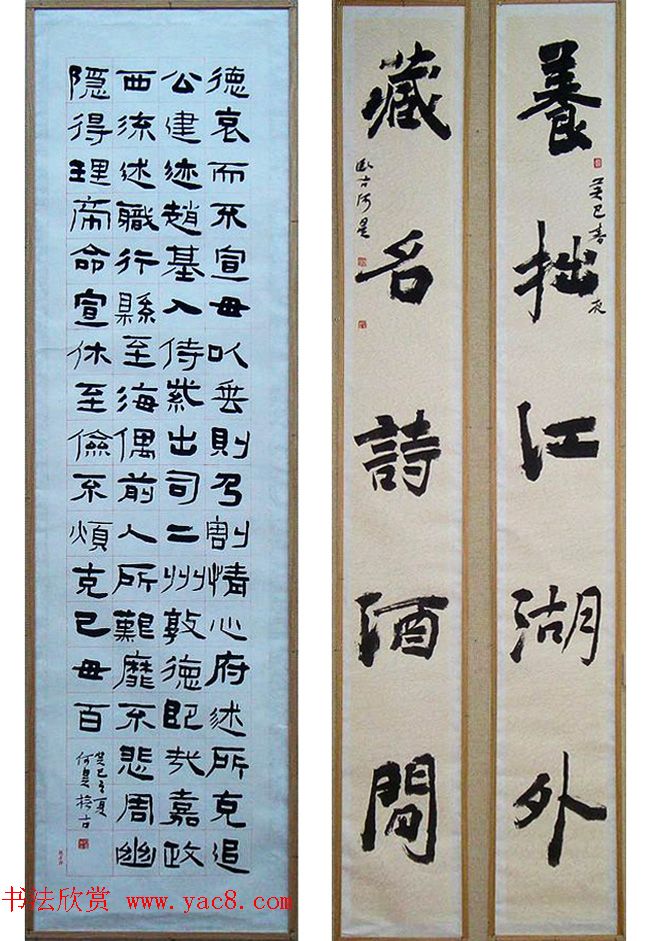 德哀而不宣毋以丧則乃割情心府述所克追
公建迹趙基入侍紫出司二州敦德配哉嘉政
西流述職行縣至海偶前人所艱靡不悲周幽
隱得理帝命宣休至儉不煩克己毋百
癸巳之夏
何昱撫古
養拙江湖外
癸巳春夜
藏名詩酒間
书法欣赏 www.yac8.com